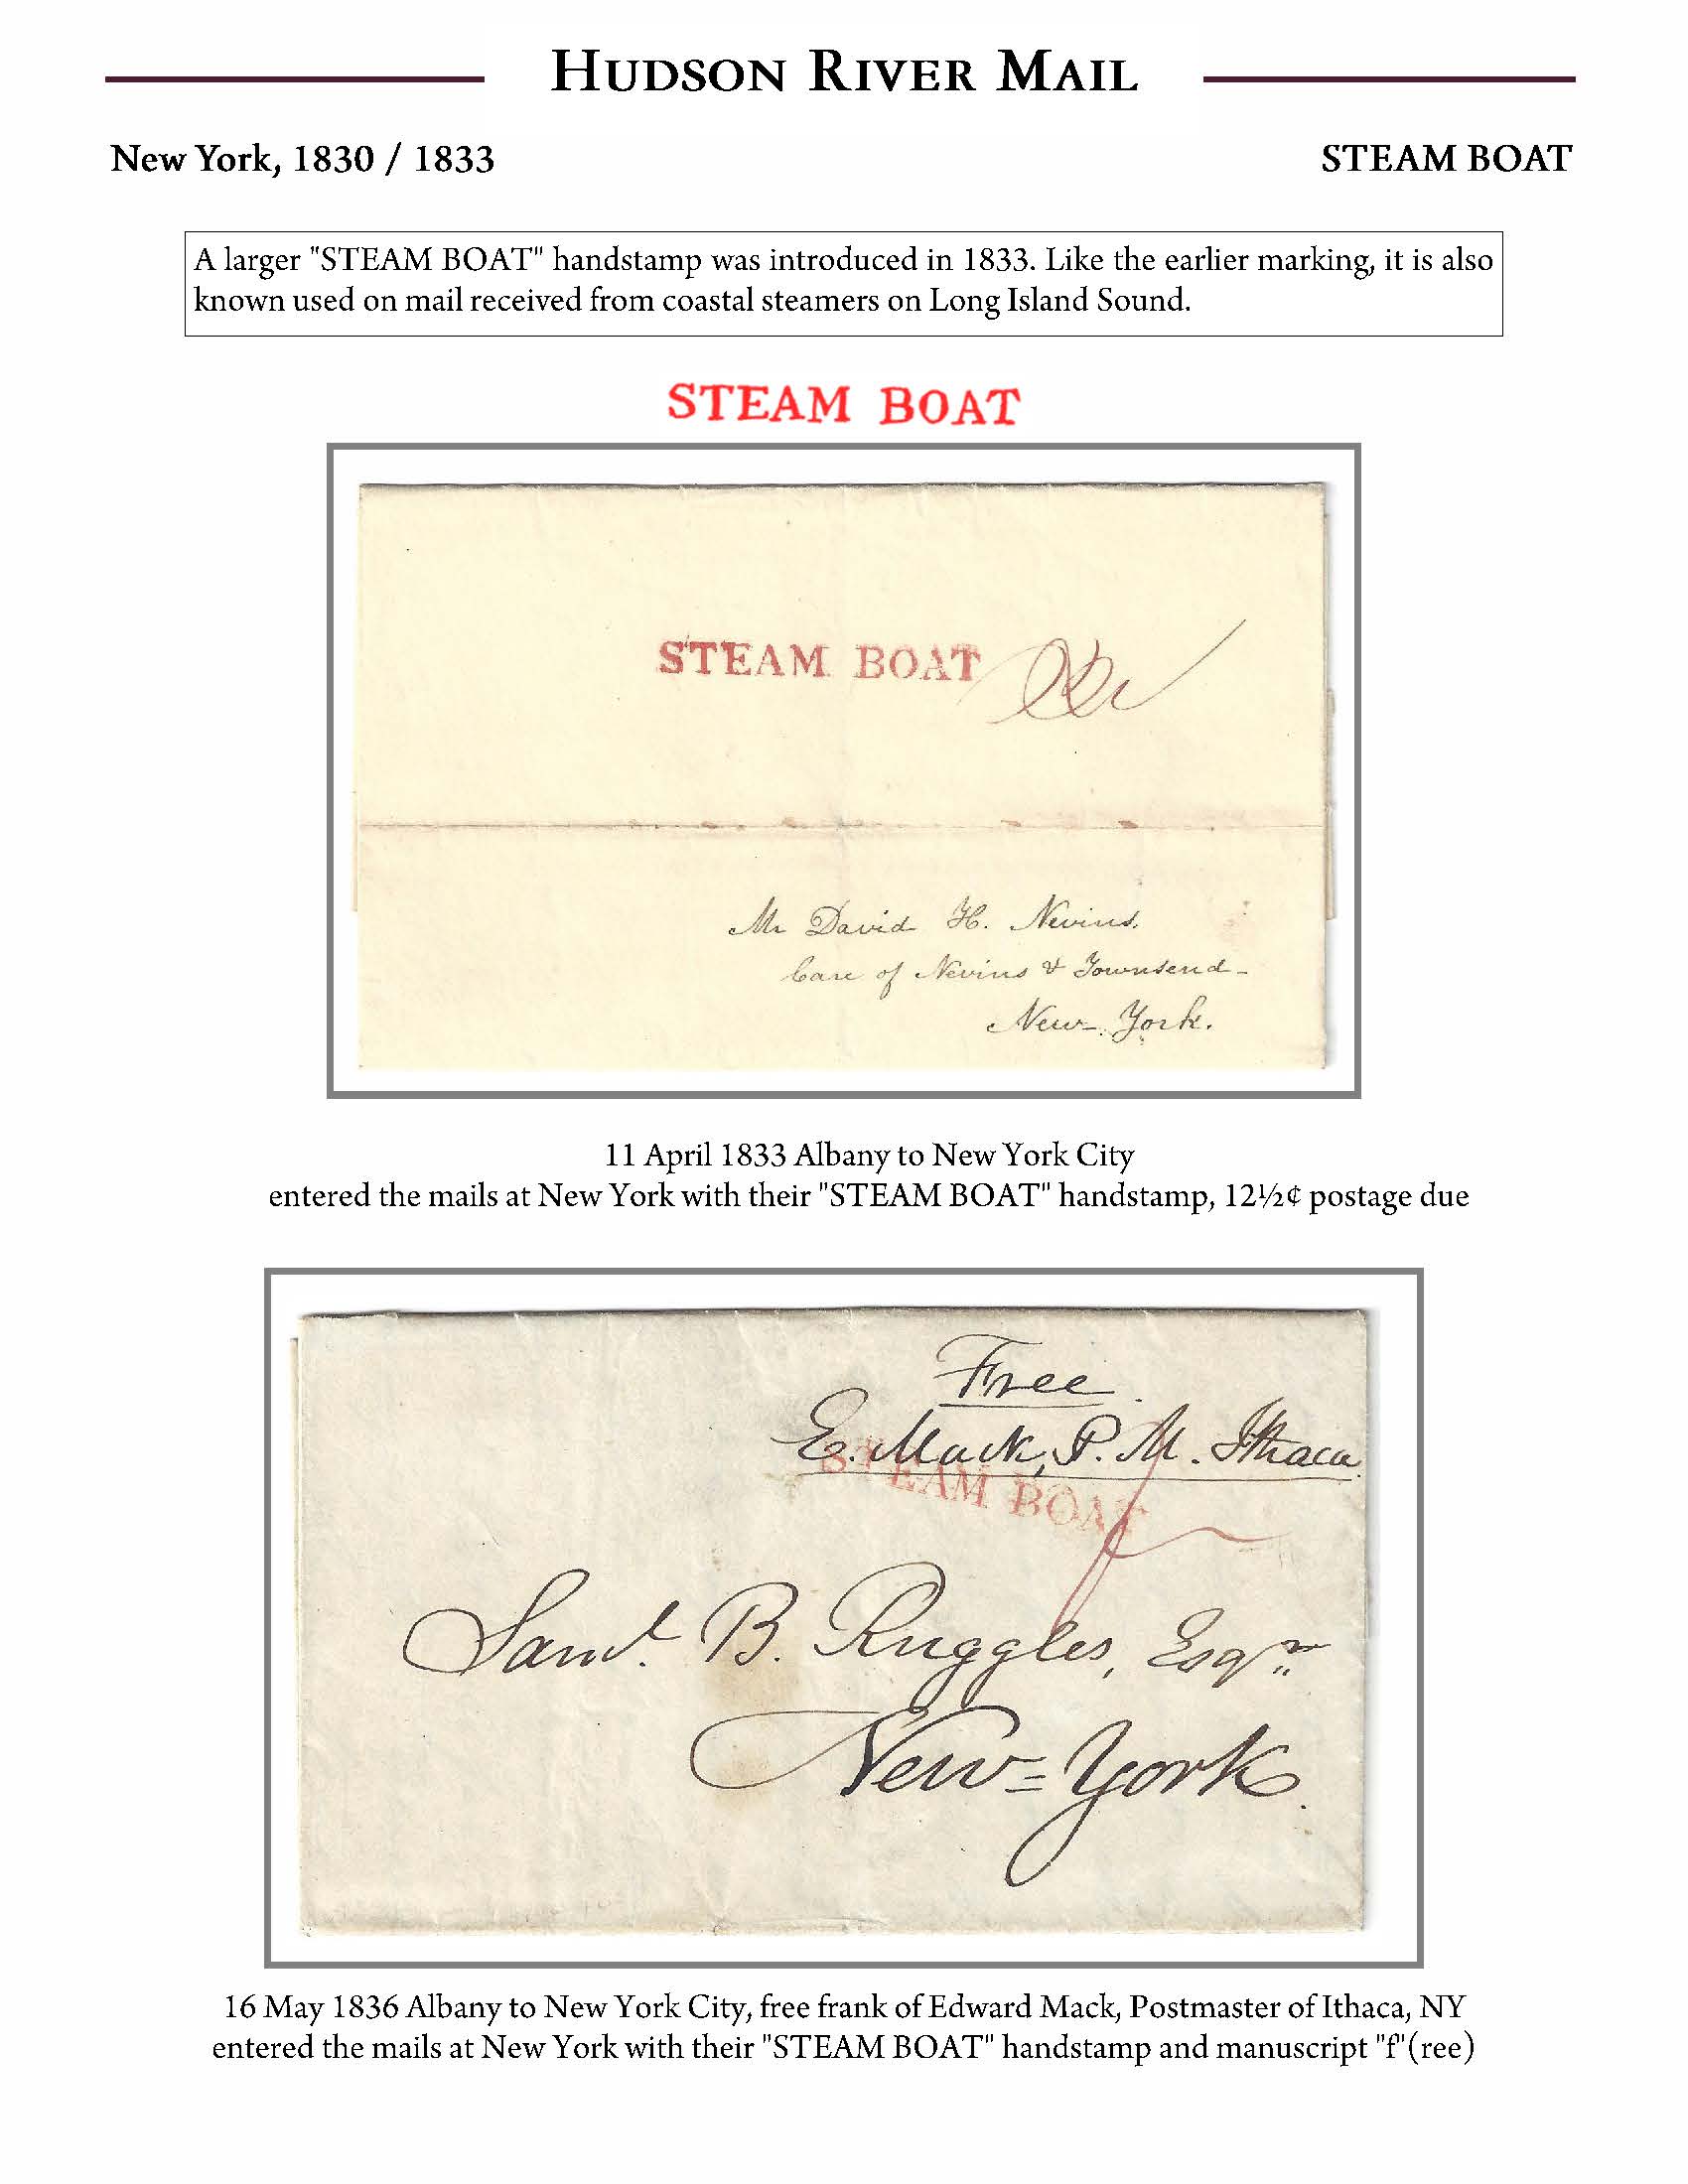 HUDSON RIVER MAIL
New York, 1830 / 1833 STEAM BOAT
A larger "STEAM BOAT" handstamp was introduced in 1833. Like the earlier marking, it is also
known used on mail received from coastal steamers on Long Island Sound.
STEAM BOAT
STEAM BOAT
Mr David H. Nevins,
Care of Nevins & Townsend-
New-York.
11 April 1833 Albany to New York City
entered the mails at New York with their "STEAM BOAT" handstamp, 12½¢ postage due
Free
E. Mack, P. M. Ithaca
STEAM BOAT
f
Saml. B. Ruggles, Esqr
New=York.
16 May 1836 Albany to New York City, free frank of Edward Mack, Postmaster of Ithaca, NY
entered the mails at New York with their "STEAM BOAT" handstamp and manuscript "f"(ree)